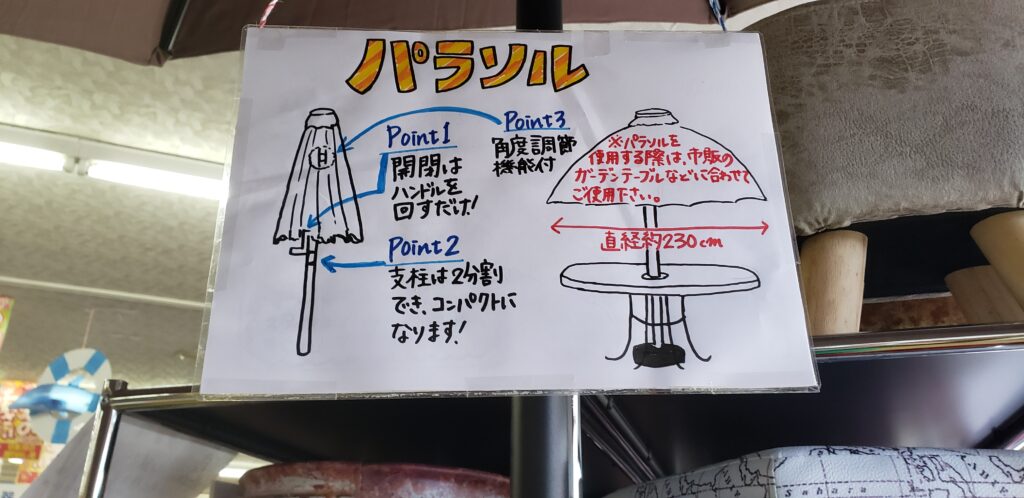 パラソル
Point1
開閉は
ハンドルを
回すだけ!
Point2
支柱は2分割
でき、コンパクトに
なります!
Point3
角度調節
機能付
※パラソルを
使用する際は、市販の
ガーデンテーブルなどに合わせて
ご使用下さい。
直径約230cm
H
Sahara